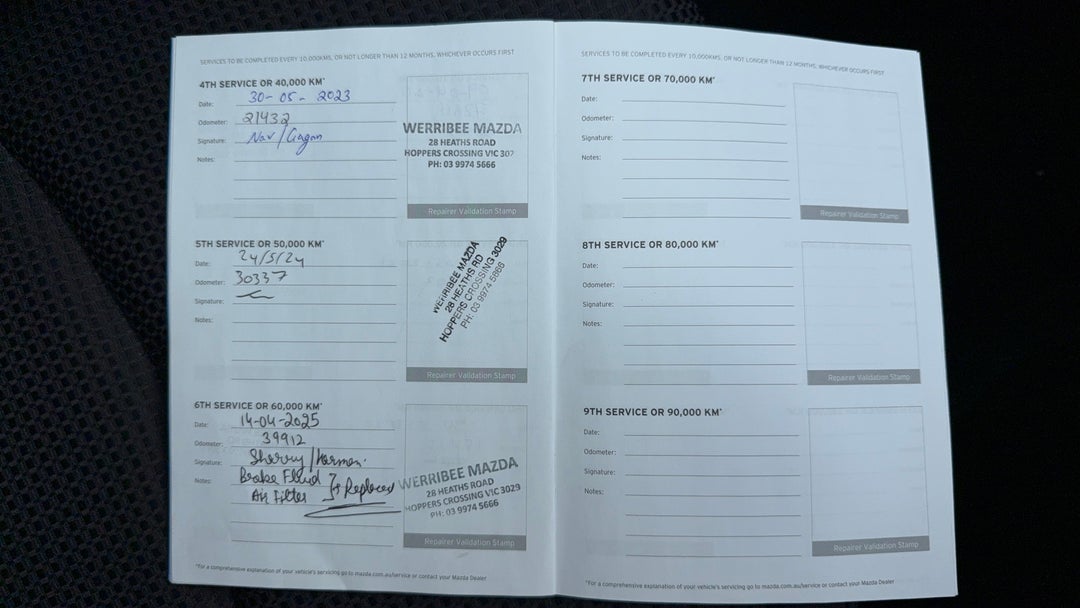 SERVICES TO BE COMPLETED EVERY 10,000KMS, OR NOT LONGER THAN 12 MONTHS, WHICHEVER OCCURS FIRST
4TH SERVICE OR 40,000 KM*
Date: 30-05-2023
Odometer: 21432
Signature: Nav/Gagan
Notes:
WERRIBEE MAZDA
28 HEATHS ROAD
HOPPERS CROSSING VIC 302
PH: 03 9974 5666
Repairer Validation Stamp
5TH SERVICE OR 50,000 KM*
Date: 24/5/24
Odometer: 30337
Signature:
Notes:
WERRIBEE MAZDA
28 HEATHS RD
HOPPERS CROSSING 3029
PH: 03 9974 5666
Repairer Validation Stamp
6TH SERVICE OR 60,000 KM*
Date: 14-04-2025
Odometer: 39912
Signature: Sherry/Harman.
Notes: Brake Fluid
Air Filter } Replaced
WERRIBEE MAZDA
28 HEATHS ROAD
HOPPERS CROSSING VIC 3029
PH: 03 9974 5666
Repairer Validation Stamp
*For a comprehensive explanation of your vehicle's servicing go to mazda.com.au/service or contact your Mazda Dealer
SERVICES TO BE COMPLETED EVERY 10,000KMS, OR NOT LONGER THAN 12 MONTHS, WHICHEVER OCCURS FIRST
7TH SERVICE OR 70,000 KM*
Date:
Odometer:
Signature:
Notes:
Repairer Validation Stamp
8TH SERVICE OR 80,000 KM*
Date:
Odometer:
Signature:
Notes:
Repairer Validation Stamp
9TH SERVICE OR 90,000 KM*
Date:
Odometer:
Signature:
Notes:
Repairer Validation Stamp
*For a comprehensive explanation of your vehicle's servicing go to mazda.com.au/service or contact your Mazda Dealer